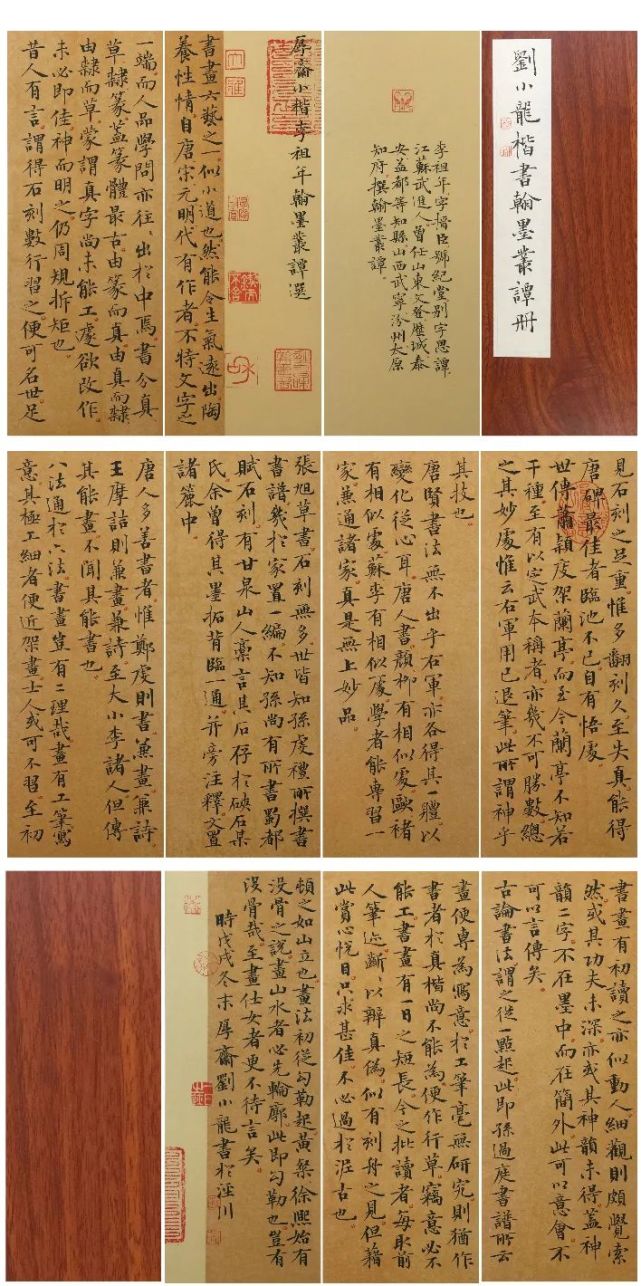 劉小龍楷書翰墨叢譚冊
李祖年字搢臣號紀堂别字思譚
江蘇武進人曾任山東文登歷城泰
安益都等知縣山西武寧汾州太原
知府撰翰墨叢譚
厚齋小楷李祖年翰墨叢譚選
書畫六藝之一似小道也然能令生氣遠出陶
養性情自唐宋元明代有作者不特文字之
一端而人品學問亦往往出於中焉書分真
草隸篆蓋篆體最古由篆而真由真而隸
由隸而草蒙謂真字尚未能工處欲改作
未必即佳神而明之仍周規折矩也
昔人有言謂得石刻數行習之便可名世足
見石刻之足重惟多翻刻久至失真能得
唐碑最佳者臨池不已自有悟處
世傳蕭穎度架蘭亭而至今蘭亭不知若
干種至有以定武本稱者亦幾不可勝數總
之其妙處惟云右軍用已退筆此所謂神乎
其技也
唐賢書法無不出乎右軍亦各得其一體以
變化從心耳唐人書顏柳有相似處歐褚
有相似處蘇李有相似處學者能專習一
家兼通諸家真是無上妙品
張旭草書石刻無多世皆知孫虔禮所撰書
書譜幾於家置一編不知孫尚有所書蜀都
賦石刻有甘泉山人稟言其石存於硤石某
氏余曾得其墨拓背臨一通并旁注釋文置
諸簏中
唐人多善書者惟鄭虔則書兼畫兼詩
王摩詰則兼畫兼詩至大小李諸人但傳
其能畫不聞其能書也
八法通於六法書畫豈有二理哉畫有工筆寫
意其極工細者便近架畫士人或可不習至初
畫便專為寫意於工筆毫無研究則猶作
書者於真楷尚不能為便作行草竊意必不
能工書畫有一日之短長今之批讀者每取前
人筆迹斷以辨真偽似有刻舟之見但藉
此賞心悅目只求甚佳不必過於泥古也
書畫有初讀之亦似動人細觀則頗覺索
然或其功夫未深亦或其神韻未得蓋神
韻二字不在墨中而在簡外此可以意會不
可以言傳矣
古論書法謂之從一點起此即孫過庭書譜所云
頓之如山立也畫法初從勾勒起黄筌徐熙始有
没骨之說畫山水者必先輪廓此即勾勒也豈有
没骨哉至畫仕女者更不待言矣
時戊戌冬末厚齋劉小龍書於涇川